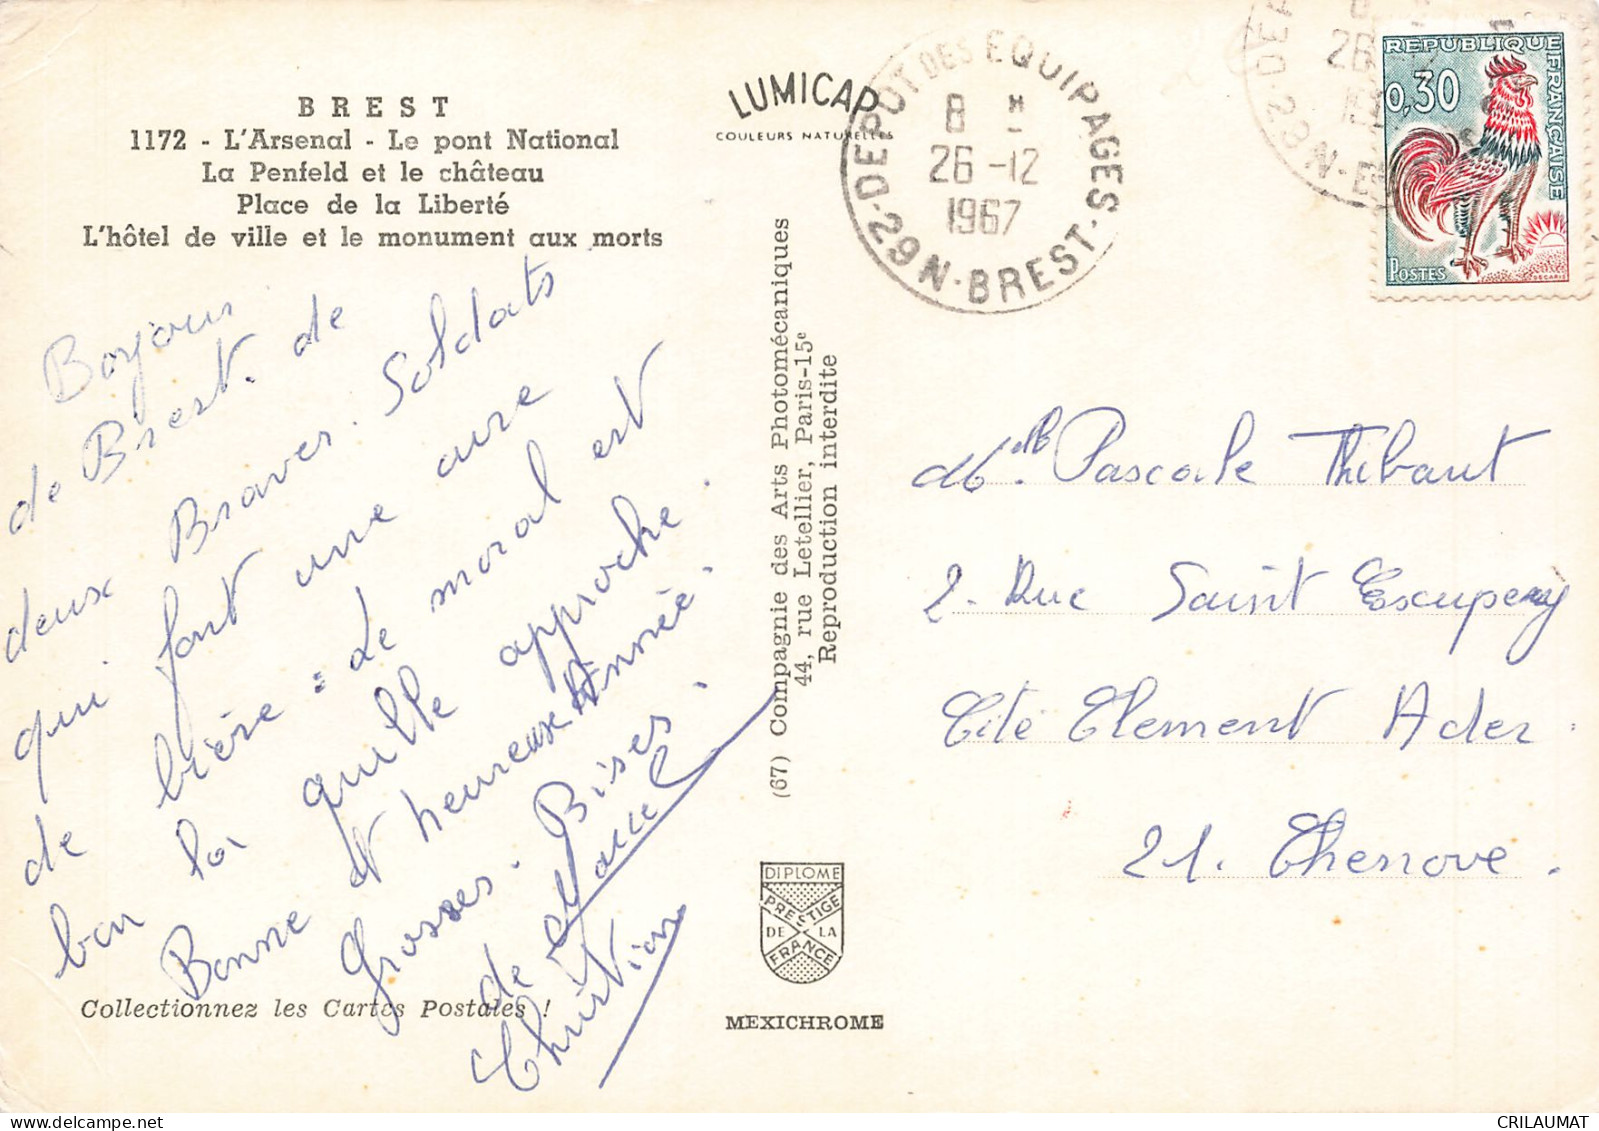 BREST
1172 - L'Arsenal - Le pont National
La Penfeld et le château
Place de la Liberté
L'hôtel de ville et le monument aux morts
LUMICAP
COULEURS NATURELLES
DEPOT DES EQUIPAGES
8 H
26 -12
1967
D·29N·BREST·
26
REPUBLIQUE FRANÇAISE
0,30
POSTES
DECARIS
Bonjour
de Brest. de
deux Braves. Soldats
qui font une cure
de bière. Le moral est
bon la quille approche.
Bonne et heureuse Année.
Grosses. Bises.
de Marcel
Christian
Collectionnez les Cartes Postales !
(67) Compagnie des Arts Photomécaniques
44, rue Letellier, Paris-15e
Reproduction interdite
DIPLOME
PRESTIGE
DE LA
FRANCE
MEXICHROME
Mlle. Pascale Thibaut
2. Rue Saint Exupery
Cité Clement Ader.
21. Chenove.
CRILAUMAT